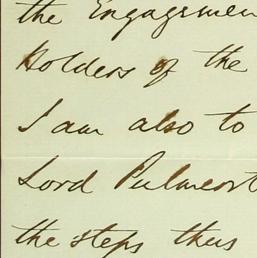 the Engagemen
Holders of the
I am also to
Lord
the steps thus